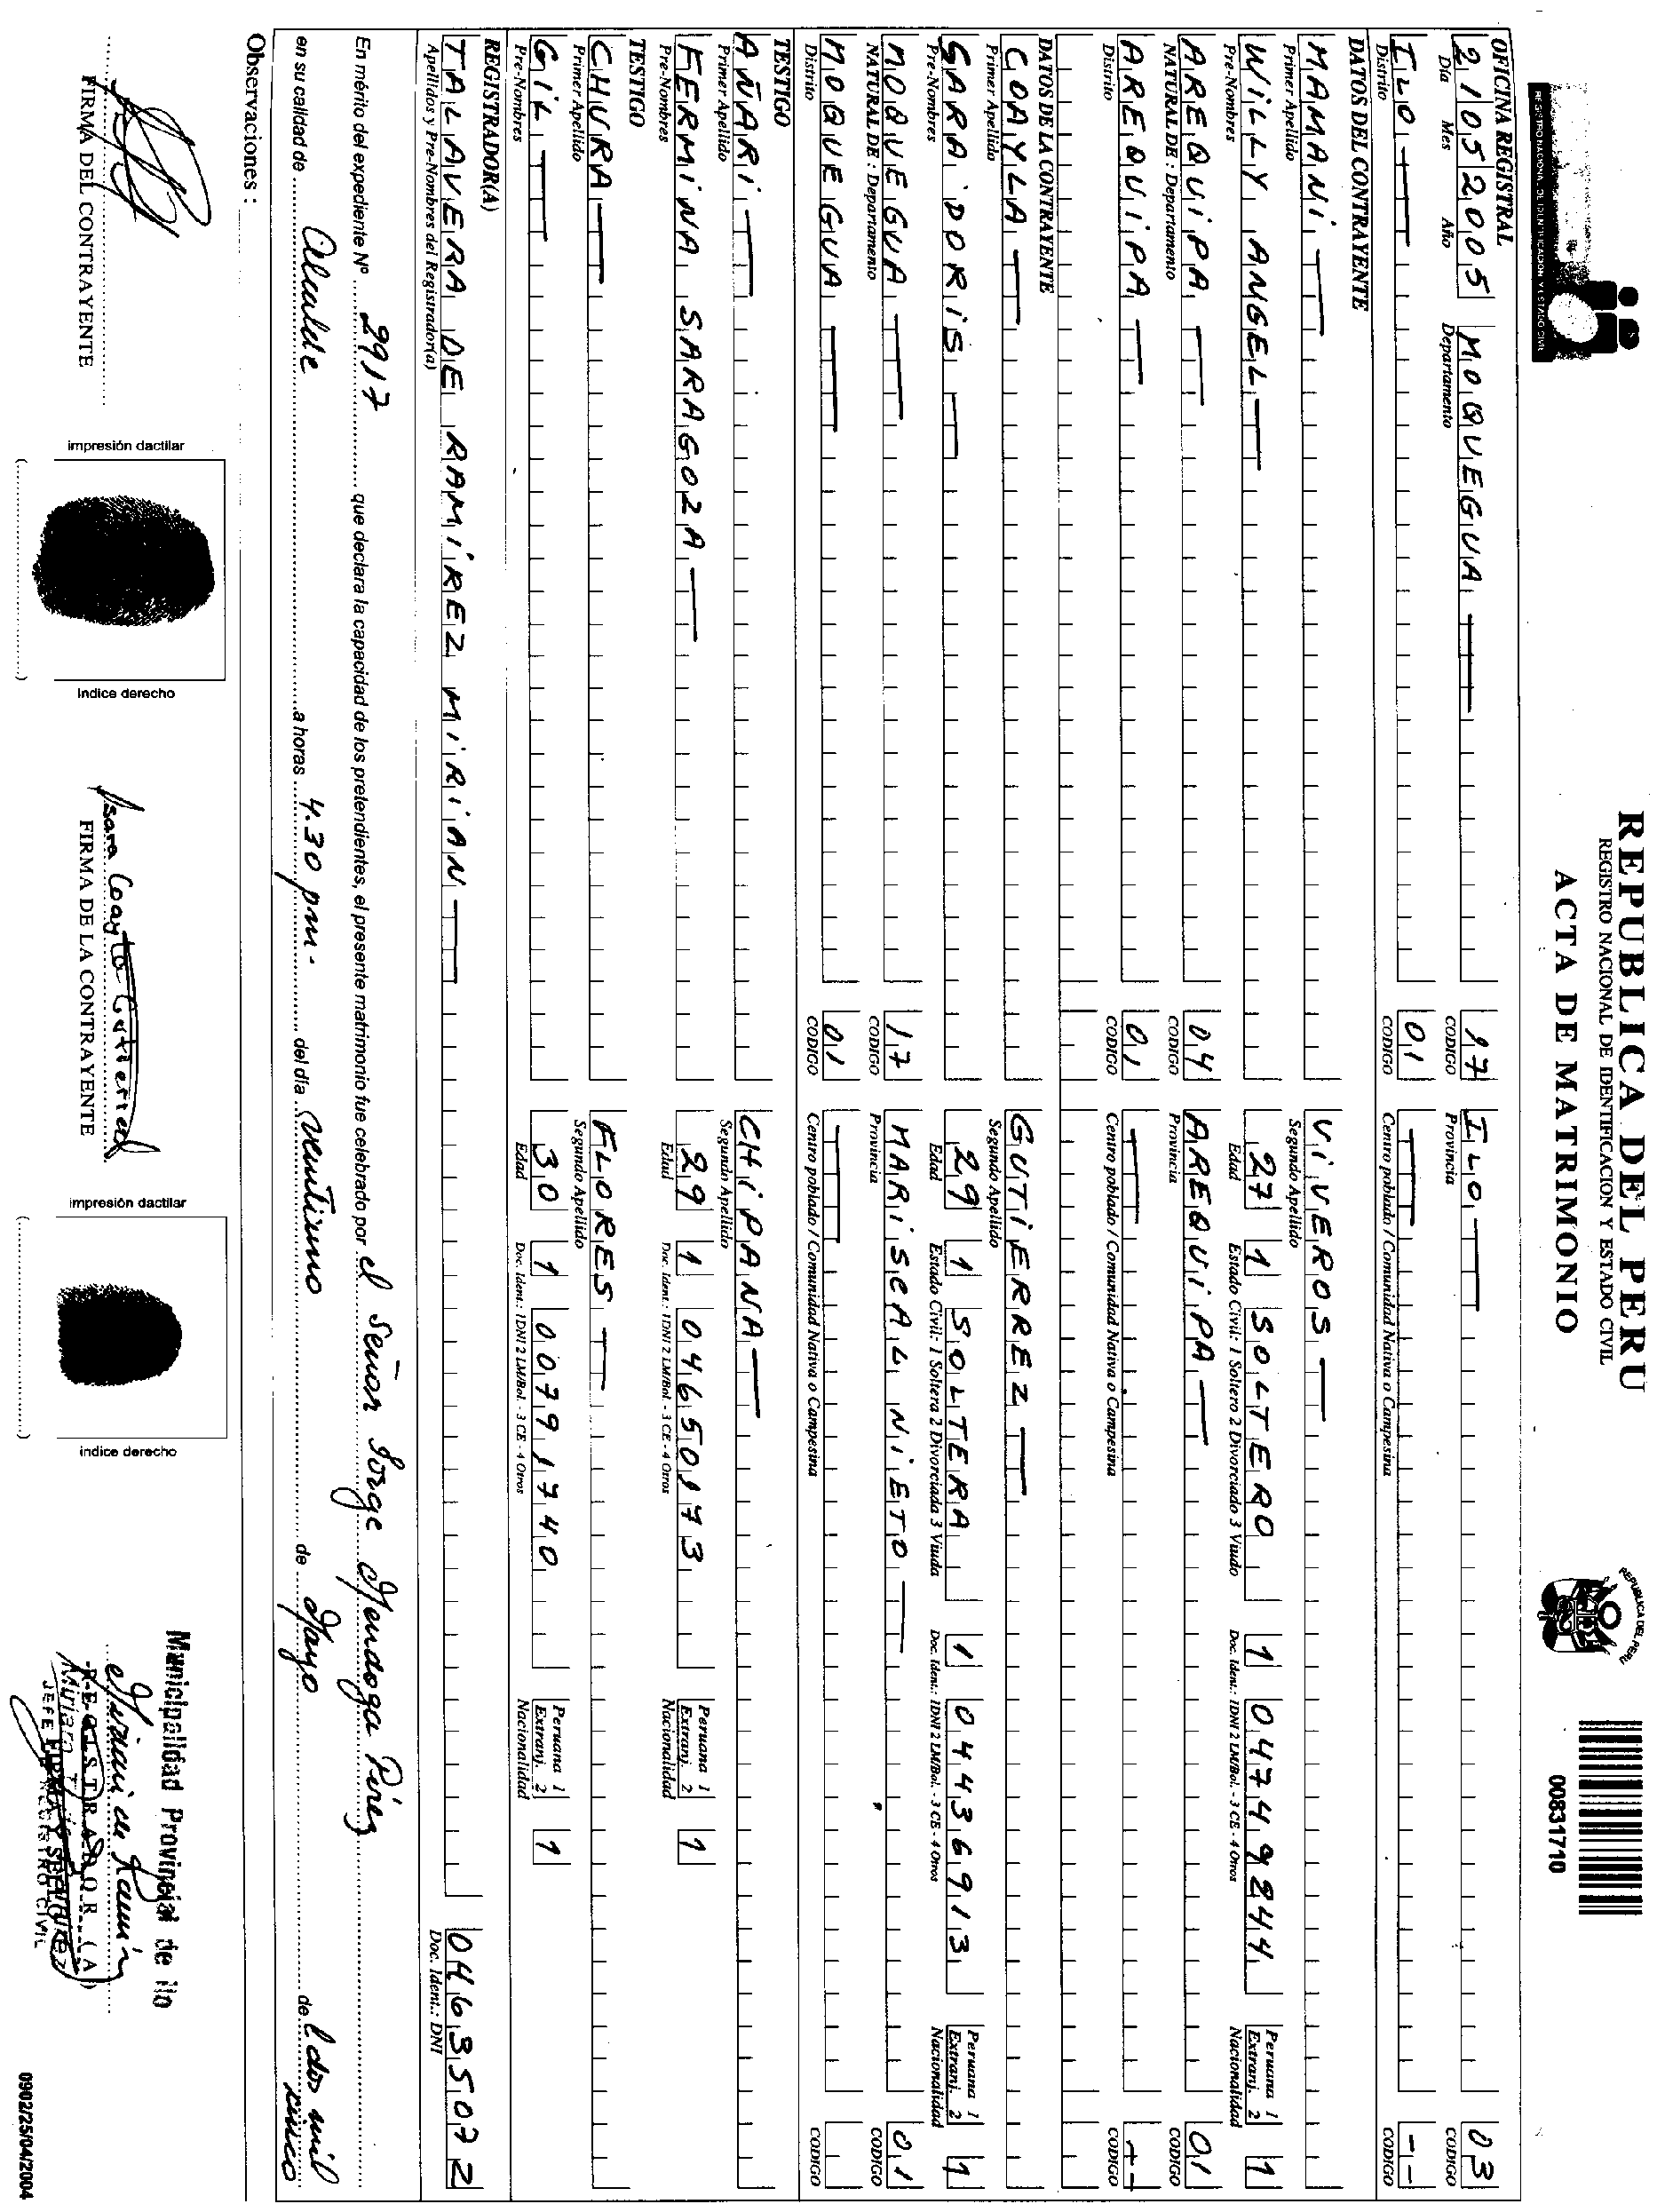 REPUBLICA DEL PERU
REGISTRO NACIONAL DE IDENTIFICACION Y ESTADO CIVIL
ACTA DE MATRIMONIO
REGISTRO NACIONAL DE IDENTIFICACION Y ESTADO CIVIL
REPUBLICA DEL PERU
00831710
OFICINA REGISTRAL
21 05 2005 MOQUEGUA 17 ILO 03
Día Mes Año Departamento CODIGO Provincia CODIGO
ILO 01 --
Distrito CODIGO Centro poblado / Comunidad Nativa o Campesina CODIGO
DATOS DEL CONTRAYENTE
MAMANI VIVEROS
Primer Apellido Segundo Apellido
WILLY ANGEL 27 1 SOLTERO 1 04749244 Peruana 1 Extranj. 2 1
Pre-Nombres Edad Estado Civil: 1 Soltero 2 Divorciado 3 Viudo Doc. Ident.: 1DNI 2 LM/Bol. - 3 CE - 4 Otros Nacionalidad
AREQUIPA 04 AREQUIPA 01
NATURAL DE : Departamento CODIGO Provincia CODIGO
AREQUIPA 01 --
Distrito CODIGO Centro poblado / Comunidad Nativa o Campesina CODIGO
DATOS DE LA CONTRAYENTE
COAYLA GUTIERREZ
Primer Apellido Segundo Apellido
SARA DORIS 29 1 SOLTERA 1 04436913 Peruana 1 Extranj. 2 1
Pre-Nombres Edad Estado Civil: 1 Soltera 2 Divorciada 3 Viuda Doc. Ident.: 1DNI 2 LM/Bol. - 3 CE - 4 Otros Nacionalidad
MOQUEGUA 17 MARISCAL NIETO 01
NATURAL DE : Departamento CODIGO Provincia CODIGO
MOQUEGUA 01
Distrito CODIGO Centro poblado / Comunidad Nativa o Campesina CODIGO
TESTIGO
AÑARI CHIPANA
Primer Apellido Segundo Apellido
FERMINA SARAGOZA 29 1 04650173 Peruana 1 Extranj. 2 1
Pre-Nombres Edad Doc. Ident.: 1DNI 2 LM/Bol. - 3 CE - 4 Otros Nacionalidad
TESTIGO
CHURA FLORES
Primer Apellido Segundo Apellido
GIL 30 1 00791740 Peruana 1 Extranj. 2 1
Pre-Nombres Edad Doc. Ident.: 1DNI 2 LM/Bol. - 3 CE - 4 Otros Nacionalidad
REGISTRADOR(A)
TALAVERA DE RAMIREZ MIRIAN 04635072
Apellidos y Pre-Nombres del Registrador(a) Doc. Ident.: DNI
En mérito del expediente Nº 2917 que declara la capacidad de los pretendientes, el presente matrimonio fue celebrado por el Señor Jorge Mendoza Pérez
en su calidad de Alcalde a horas 4.30 pm. del día veintiuno de Mayo de l dos mil cinco
Observaciones :
FIRMA DEL CONTRAYENTE
impresión dactilar
Indice derecho
Sara Coayla Gutierrez
FIRMA DE LA CONTRAYENTE
impresión dactilar
indice derecho
Municipalidad Provincial de Ilo
REGISTRADOR (A)
JEFE REGISTRO CIVIL
FIRMA Y SELLO
0902/25/04/2004